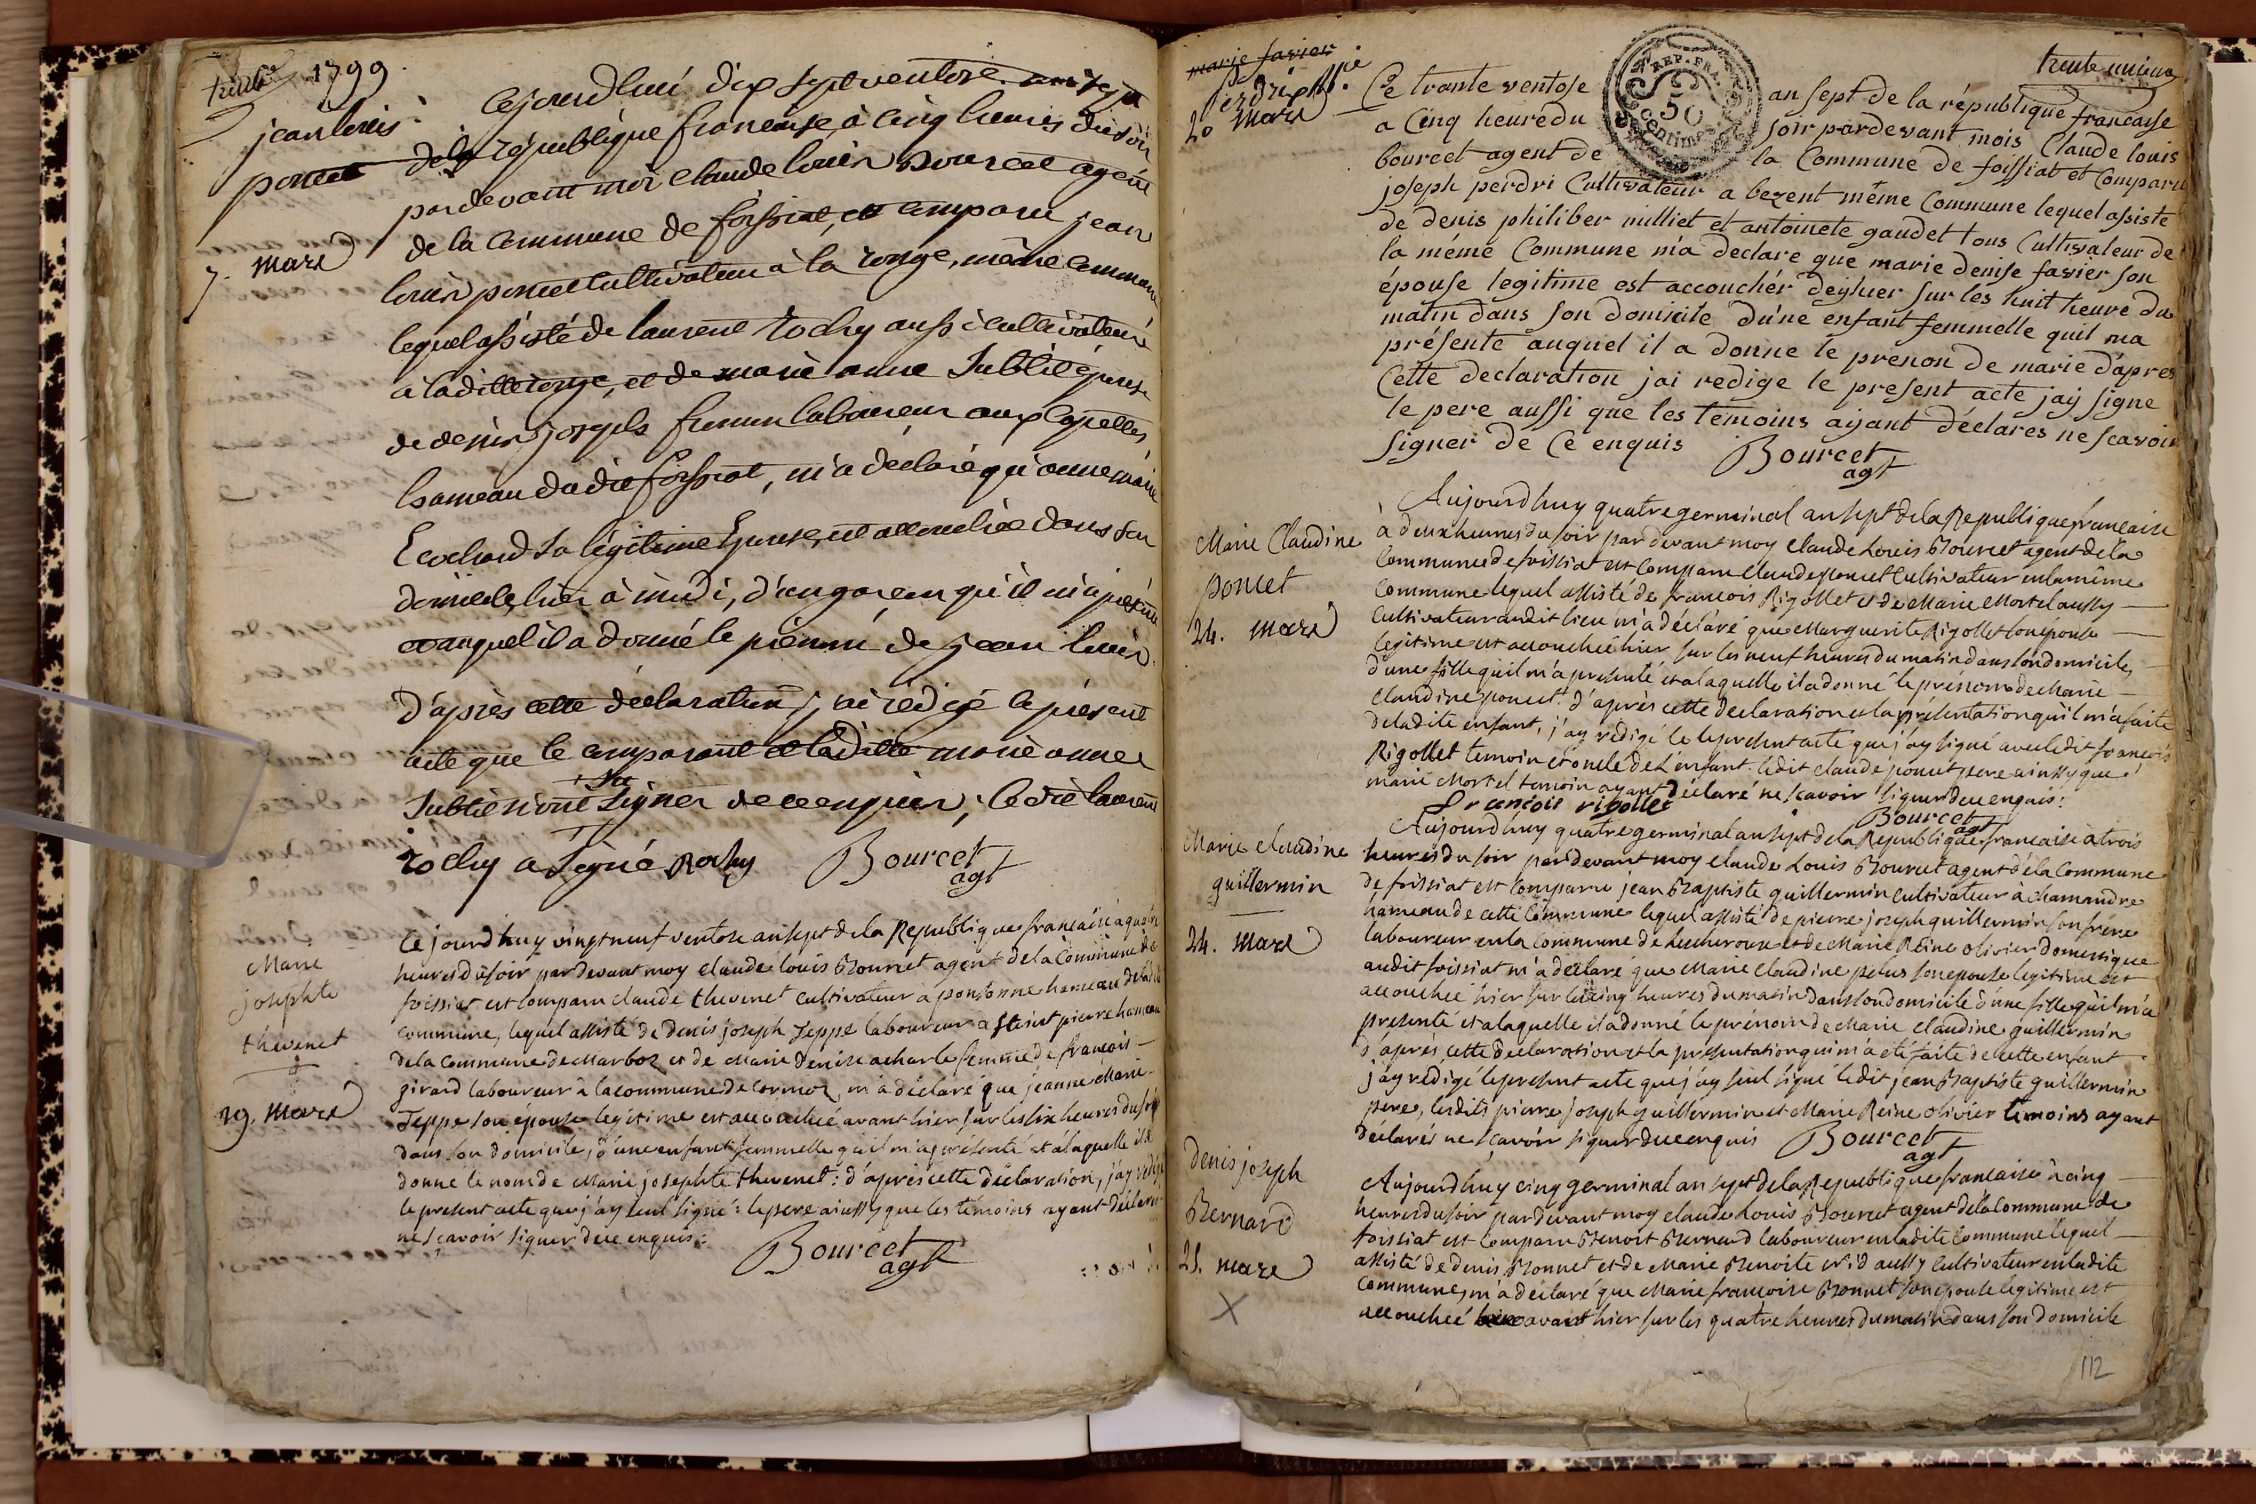 1799
jean louis
poncet
7. mars
Cejourdhui dix sept ventose an sept
de la république francaise, à cinq heures du soir
pardevant moi claude louis Bourcet agent
de la commune de foissiat, est comparu jean
louis poncet cultivateur à la ronge, même commune
lequel assisté de laurent rochy aussi cultivateur
à laditte ronge, et de marie anne Subtil épouse
de denis joseph laboureur aux
hameau dudit foissiat, m'a déclaré qu'anne marie
Ecochard sa légitime Epouse, est accouchée dans son
domicile, hier à midi, d'un garcon qu'il m'a présenté
et auquel il a donné le prénom de jean louis.
D'après cette déclaration, j'ai rédigé le présent
acte que le comparant et laditte marie anne
Subtil n'ont Su Signer de ce enquis, ledit laurent
rochy a Signé Rochy Bourcet
agt
Marie
josephte
thevenet
19. mars
Ce jourdhuy vingt neuf ventose an sept de la Republique francaise à quatre
heures du soir par devant moy claude louis Bourcet agent de la commune de
foissiat est comparu claude thevenet cultivateur à ponsonne hameau de la dite
commune, lequel assisté de Denis joseph Teppe laboureur a st pierre hameau
de la commune de Marboz et de Marie Denise acharle femme de francois
girard laboureur à la commune de cormoz, m'a déclaré que jeanne Marie
Teppe son épouse legitime est accouchée avant hier sur les six heures du soir
dans son domicile d'une enfant femmelle qu'il m'a présenté et a laquelle il a
donné le nom de Marie josephte thevenet: d'après cette déclaration, j'ay redigé
le present acte que j'ay seul signé: le pere ainssy que les témoins ayant déclaré
ne scavoir signer de ce enquis:
Bourcet
agt
trente unieme
marie favier
perdrix
20 mars
REP. FRA.
50
centimes
Ce trante ventose an sept de la république francaise
a Cinq heure du soir pardevant mois Claude louis
bourcet agent de la Commune de foissiat et Comparu
joseph perdri Cultivateur a bezent même Commune lequel assiste
de denis philiber milliet et antoinete gaudet tous Cultivateur de
la méme Commune m'a declare que marie denise favier son
épouse legitime est accouchér d'eyhier sur les huit heure du
matin dans son domicile d'une enfant femmelle quil ma
présente auquel il a donne le prenon de marie d'apres
Cette declaration jai redige le present acte jaÿ signe
le pere aussi que les temoins aÿant déclares ne scavoir
signer de Ce enquis Bourcet
agt
Marie Claudine
poncet
24. mars
Aujourdhuy quatre germinal an sept de la Republique francaise
à deux heures du soir par devant moy Claude Louis Bourcet agent de la
Commune de foissiat est comparu claude poncet Cultivateur en la même
Commune lequel assisté de francois Rigollet et de Marie Mortel aussy
Cultivateur audit lieu m'a déclaré que Marguerite Rigollet son épouse
legitime est accouchée hier sur les neuf heures du matin dans son domicile,
d'une fille qu'il m'a presenté et a laquelle il a donné le prénom de Marie
Claudine poncet. d'après cette declaration et la présentation qu'il m'a faite
de la dite enfant, j'ay rédigé le le present acte que j'ay signé avec ledit francois
Rigollet temoin et oncle de L'enfant. ledit claude poncet pere ainssy que
marie Mortel temoin ayant déclaré ne scavoir signer de ce enquis:
francois rigollet
Bourcet
agt
Marie claudine
guillermin
24. mars
Aujourdhuy quatre germinal an sept de la Republique francaise a trois
heures du soir par devant moy claude Louis Bourcet agent de la commune
de foissiat est comparu jean Baptiste guillermin cultivateur à chamandre
hameau de cette commune lequel assisté de pierre joseph guillermin son frère
laboureur en la commune de Lescheroux et de Marie Reine olivier domestique
audit foissiat m'a déclaré que Marie Claudine son epouse legitime est
accouchée hier sur les cinq heures du matin dans son domicile d'une fille qu'il m'a
presenté et a laquelle il a donné le prénom de Marie claudine guillermin
d'après cette declaration et la presentation qui m'a été faite de cette enfant
j'ay rédigé le present acte que j'ay seul signé ledit jean Baptiste guillermin
pere, lesdits pierre joseph guillermin et Marie Reine olivier témoins ayant
déclarés ne scavoir signer de ce enquis Bourcet
agt
Denis joseph
Bernard
25. mars
X
Aujourdhuy cinq germinal an sept de la Republique francaise à cinq
heures du soir par devant moy claude Louis Bourcet agent de la Commune de
foissiat est comparu Benoit Bernard laboureur en la dite commune lequel
assisté de denis Bonnet et de Marie Benoite aussy cultivateur en la dite
commune, m'a déclaré que Marie francoise Bonnet son épouse legitime est
accouchée avant hier sur les quatre heures du matin dans son domicile
112